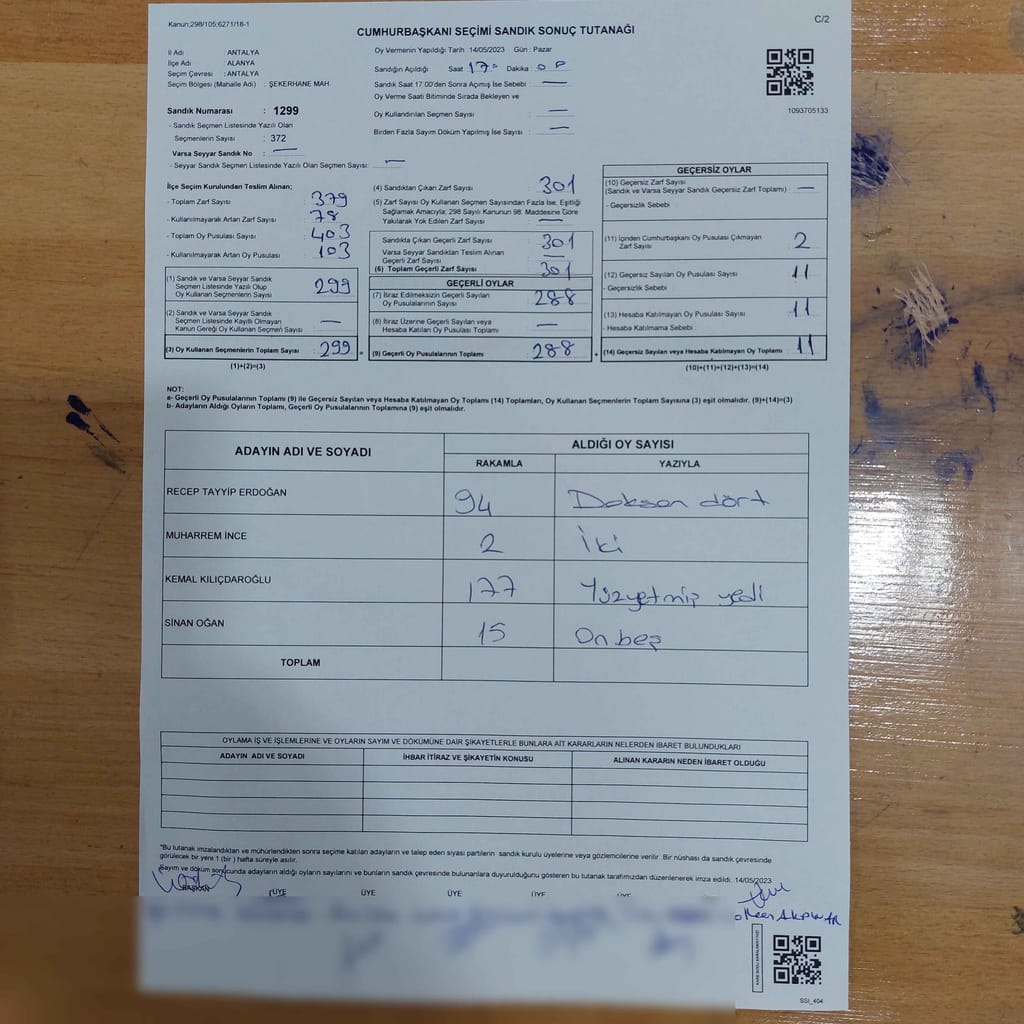 Kanun;298/105;6271/18-1
C/2
CUMHURBAŞKANI SEÇİMİ SANDIK SONUÇ TUTANAĞI
İl Adı : ANTALYA
İlçe Adı : ALANYA
Seçim Çevresi : ANTALYA
Seçim Bölgesi (Mahalle Adı) : ŞEKERHANE MAH.
Oy Vermenin Yapıldığı Tarih :14/05/2023 Gün : Pazar
Sandığın Açıldığı Saat 17 Dakika
Sandık Saat 17:00'den Sonra Açımış İse Sebebi : —
Oy Verme Saati Bitiminde Sırada Bekleyen ve
Oy Kullandırılan Seçmen Sayısı : —
Birden Fazla Sayım Döküm Yapılmış İse Sayısı : —
1093705133
Sandık Numarası : 1299
- Sandık Seçmen Listesinde Yazılı Olan
Seçmenlerin Sayısı : 372
Varsa Seyyar Sandık No : —
- Seyyar Sandık Seçmen Listesinde Yazılı Olan Seçmen Sayısı: —
İlçe Seçim Kurulundan Teslim Alınan;
- Toplam Zarf Sayısı : 379
- Kullanılmayarak Artan Zarf Sayısı : 78
- Toplam Oy Pusulası Sayısı : 403
- Kullanılmayarak Artan Oy Pusulası : 103
(1) Sandık ve Varsa Seyyar Sandık
Seçmen Listesinde Yazılı Olup
Oy Kullanan Seçmenlerin Sayısı : 299
(2) Sandık ve Varsa Seyyar Sandık
Seçmen Listesinde Kayıtlı Olmayan
Kanun Gereği Oy Kullanan Seçmen Sayısı : —
(3) Oy Kullanan Seçmenlerin Toplam Sayısı : 299
(1)+(2)=(3)
(4) Sandıktan Çıkan Zarf Sayısı : 301
(5) Zarf Sayısı Oy Kullanan Seçmen Sayısından Fazla İse, Eşitliği
Sağlamak Amacıyla; 298 Sayılı Kanunun 98. Maddesine Göre
Yakılarak Yok Edilen Zarf Sayısı : —
Sandıkta Çıkan Geçerli Zarf Sayısı : 301
Varsa Seyyar Sandıktan Teslim Alınan
Geçerli Zarf Sayısı : —
(6) Toplam Geçerli Zarf Sayısı : 301
GEÇERLİ OYLAR
(7) İtiraz Edilmeksizin Geçerli Sayılan
Oy Pusulalarının Sayısı : 288
(8) İtiraz Üzerine Geçerli Sayılan veya
Hesaba Katılan Oy Pusulası Toplamı : —
(9) Geçerli Oy Pusulalarının Toplamı : 288
GEÇERSİZ OYLAR
(10) Geçersiz Zarf Sayısı
(Sandık ve Varsa Seyyar Sandık Geçersiz Zarf Toplamı) : —
- Geçersizlik Sebebi :
(11) İçinden Cumhurbaşkanı Oy Pusulası Çıkmayan
Zarf Sayısı : 2
(12) Geçersiz Sayılan Oy Pusulası Sayısı : 11
- Geçersizlik Sebebi :
(13) Hesaba Katılmayan Oy Pusulası Sayısı : 11
- Hesaba Katılmama Sebebi :
(14) Geçersiz Sayılan veya Hesaba Katılmayan Oy Toplamı : 11
(10)+(11)+(12)+(13)=(14)
NOT:
a- Geçerli Oy Pusulalarının Toplamı (9) ile Geçersiz Sayılan veya Hesaba Katılmayan Oy Toplamı (14) Toplamları, Oy Kullanan Seçmenlerin Toplam Sayısına (3) eşit olmalıdır. (9)+(14)=(3)
b- Adayların Aldığı Oyların Toplamı, Geçerli Oy Pusulalarının Toplamına (9) eşit olmalıdır.
ADAYIN ADI VE SOYADI ALDIĞI OY SAYISI
RAKAMLA YAZIYLA
RECEP TAYYİP ERDOĞAN 94 Doksan dört
MUHARREM İNCE 2 İki
KEMAL KILIÇDAROĞLU 177 Yüzyetmiş yedi
SİNAN OĞAN 15 On beş
TOPLAM
OYLAMA İŞ VE İŞLEMLERİNE VE OYLARIN SAYIM VE DÖKÜMÜNE DAİR ŞİKAYETLERLE BUNLARA AİT KARARLARIN NELERDEN İBARET BULUNDUKLARI
ADAYIN ADI VE SOYADI İHBAR İTİRAZ VE ŞİKAYETİN KONUSU ALINAN KARARIN NEDEN İBARET OLDUĞU
"Bu tutanak imzalandıktan ve mühürlendikten sonra seçime katılan adayların ve talep eden siyasi partilerin sandık kurulu üyelerine veya gözlemcilerine verilir. Bir nüshası da sandık çevresinde
görülecek bir yere 1 (bir ) hafta süreyle asılır.
Sayım ve döküm sonucunda adayların aldığı oyların sayılarını ve bunların sandık çevresinde bulunanlara duyurulduğunu gösteren bu tutanak tarafımızdan düzenlenerek imza edildi. 14/05/2023
BAŞKAN ÜYE ÜYE ÜYE ÜYE
SSI_404